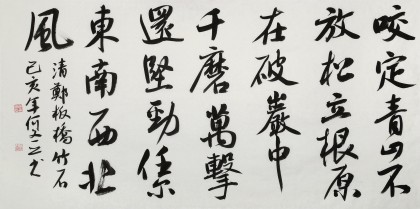 咬定青山不
放松立根原
在破巖中
千磨萬擊
還堅勁任
東南西北
風
清鄭板橋竹石
己亥年何